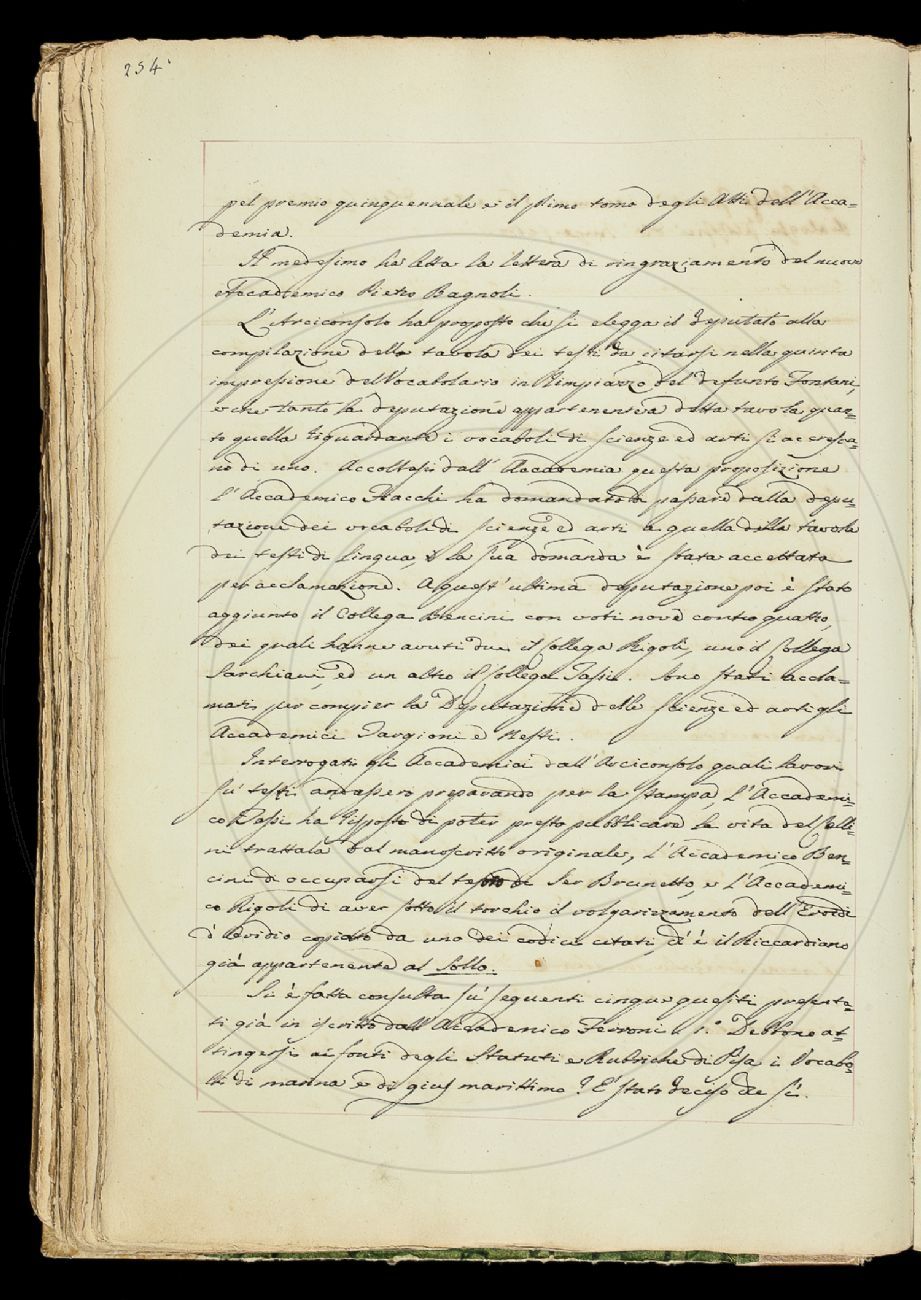 254.
pel premio quinquennale e il primo tomo degli Atti dell'Acca=
demia.
Il medesimo ha letta la lettera di ringraziamento del nuovo
Accademico Pietro Bagnoli.
L'Arciconsolo ha proposto che si elegga il Deputato alla
compilazione della tavola dei testi da citarsi nella quinta
impressione del Vocabolario in rimpiazzo del defunto Fontani,
e che tanto la deputazione appartenente a detta tavola quan=
to quella riguardante i vocaboli di scienze ed arti si accresca=
no di uno. Accoltasi dall' Accademia questa proposizione
l'Accademico Fiacchi ha domandato di passare dalla depu=
tazione dei vocaboli di scienze ed arti a quella della tavola
dei testi di lingua, e la sua domanda è stata accettata
per acclamazione. A quest'ultima deputazione poi è stato
aggiunto il Collega Bencini con voti nove contro quattro,
dei quali hanne avuti due il Collega Rigoli, uno il Collega
Sarchiani, ed un altro il Collega Tassi. Sono stati accla=
mati per compier la Deputazione delle scienze ed arti gli
Accademici Targioni e Nesti.
Interrogati gli Accademici dall'Arciconsolo quali lavori
su' testi andassero preparando per la stampa, l'Accademi=
co Tassi ha risposto di poter presto pubblicare la vita del Celli=
ni trattala dal manoscritto originale, l'Accademico Ben=
cini di occuparsi del testo di Ser Brunetto, e l'Accademi=
co Rigoli di aver sotto il torchio il volgarizzamento dell'Eroidi
d'Ovidio copiato da uno dei codici citati, ed è il Riccardiano
già appartenente al Sollo.
Si è fatta consulta su' seguenti cinque quesiti presenta=
ti già in iscritto dall'Accademico Ferroni 1.° Debbono at=
tingersi ai fonti degli Statuti e Rubriche di Pisa i Vocabo=
li di marina e di gius marittimo? E' stato deciso de sì.